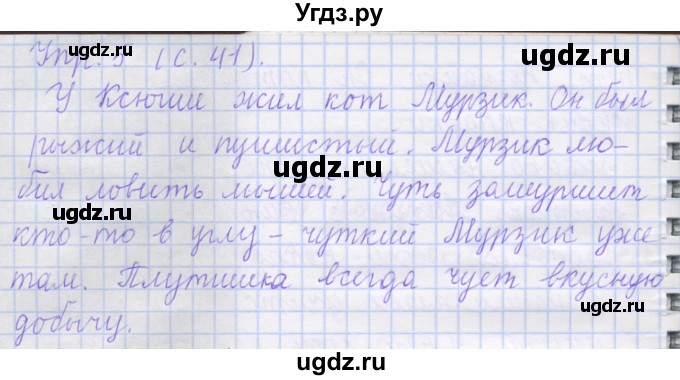 Угдз.ру
Упр. (с. 41).
У Ксюши жил кот Мурзик. Он был
рыжий и пушистый. Мурзик лю-
бил ловить мышей. Чуть зашуршит
кто-то в углу - чуткий Мурзик уже
там. Плутишка всегда чует вкусную
добычу.
ugdz.ru
ugdz.ru
ugdz.ru
ugdz.ru
ugdz.ru
ugdz.ru
ugdz.ru
ugdz.ru
ugdz.ru
Угдз.ру